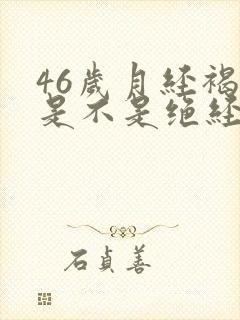 46歲月経褐
是不是绝経
石貞善